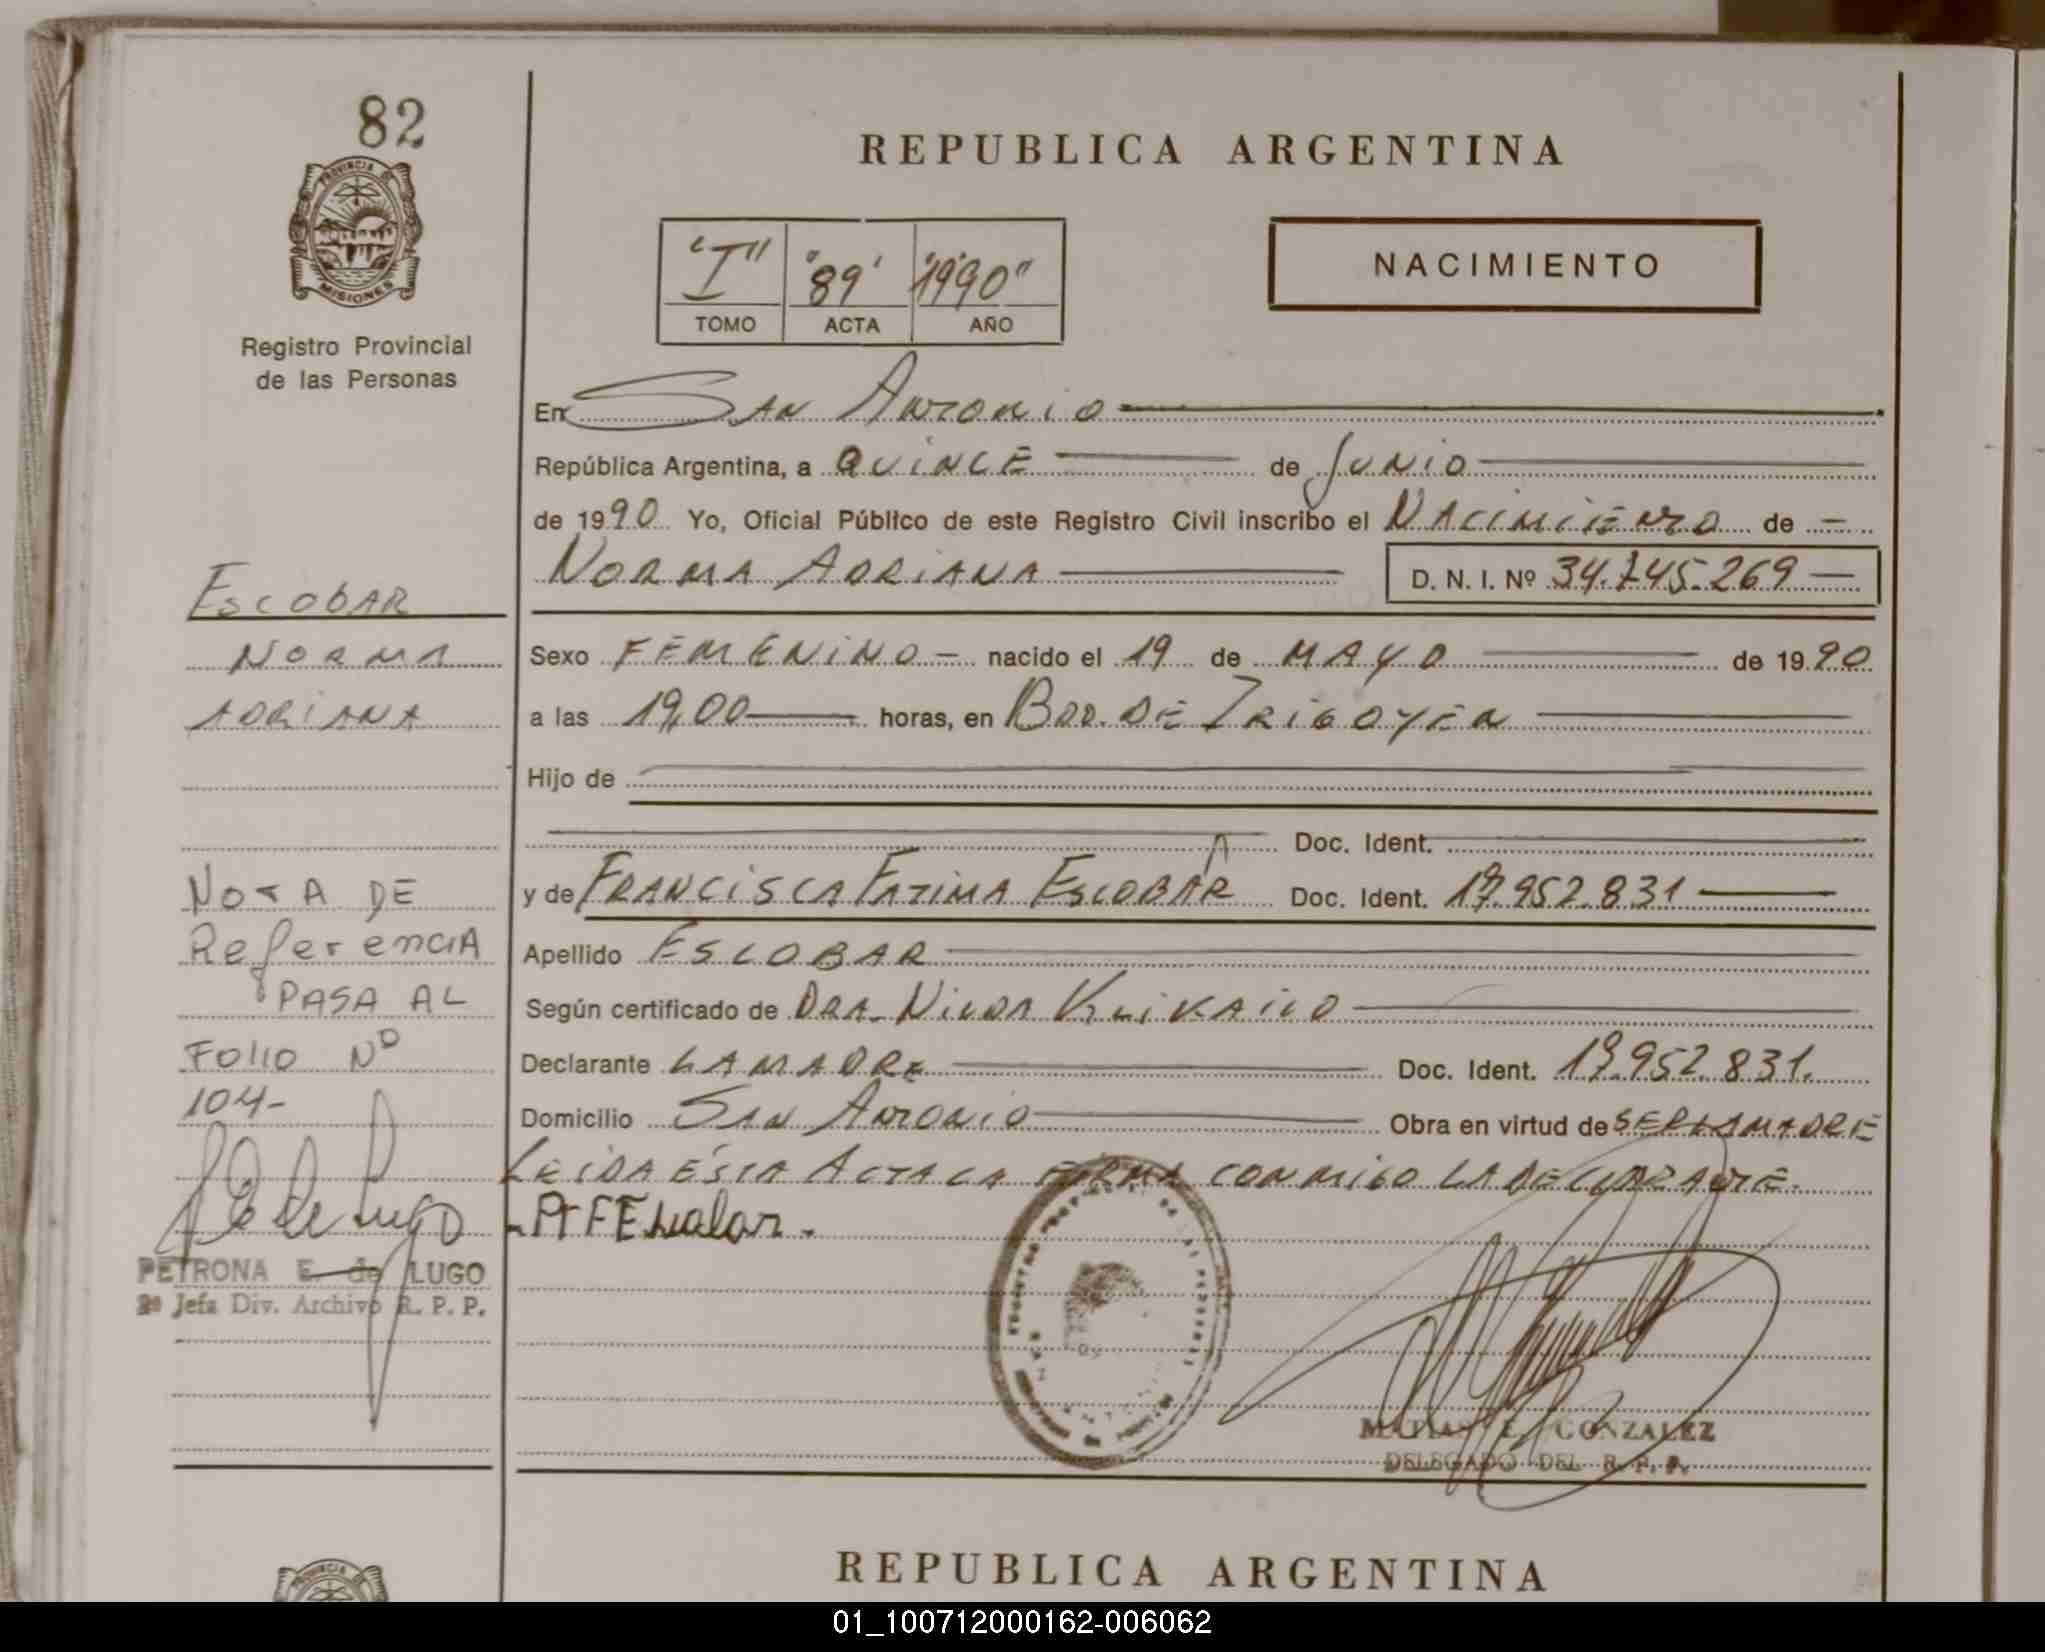 82
PROVINCIA DE
MISIONES
Registro Provincial
de las Personas
REPUBLICA ARGENTINA
"I" "89" "1990"
TOMO ACTA AÑO
NACIMIENTO
En SAN ANTONIO
República Argentina, a QUINCE de JUNIO
de 1990 Yo, Oficial Público de este Registro Civil inscribo el NACIMIENTO de
NORMA ADRIANA D. N. I. Nº 34.745.269
Sexo FEMENINO nacido el 19 de MAYO de 1990
a las 19,00 horas, en BDO. DE IRIGOYEN
Hijo de
Doc. Ident.
y de FRANCISCA FATIMA ESCOBAR Doc. Ident. 17.952.831
Apellido ESCOBAR
Según certificado de DRA. NILDA
Declarante LA MADRE Doc. Ident. 17.952.831.
Domicilio SAN ANTONIO Obra en virtud de SER LA MADRE
LEIDA ÉSTA ACTA LA FIRMA CONMIGO LA DECLARANTE.
MATIAS E. GONZALEZ
DELEGADO DEL R. P. P.
ESCOBAR
NORMA
ADRIANA
NOTA DE
Referencia
PASA AL
FOLIO Nº
104-
PETRONA E. de LUGO
2ª Jefa Div. Archivo R. P. P.
REPUBLICA ARGENTINA
01_100712000162-006062